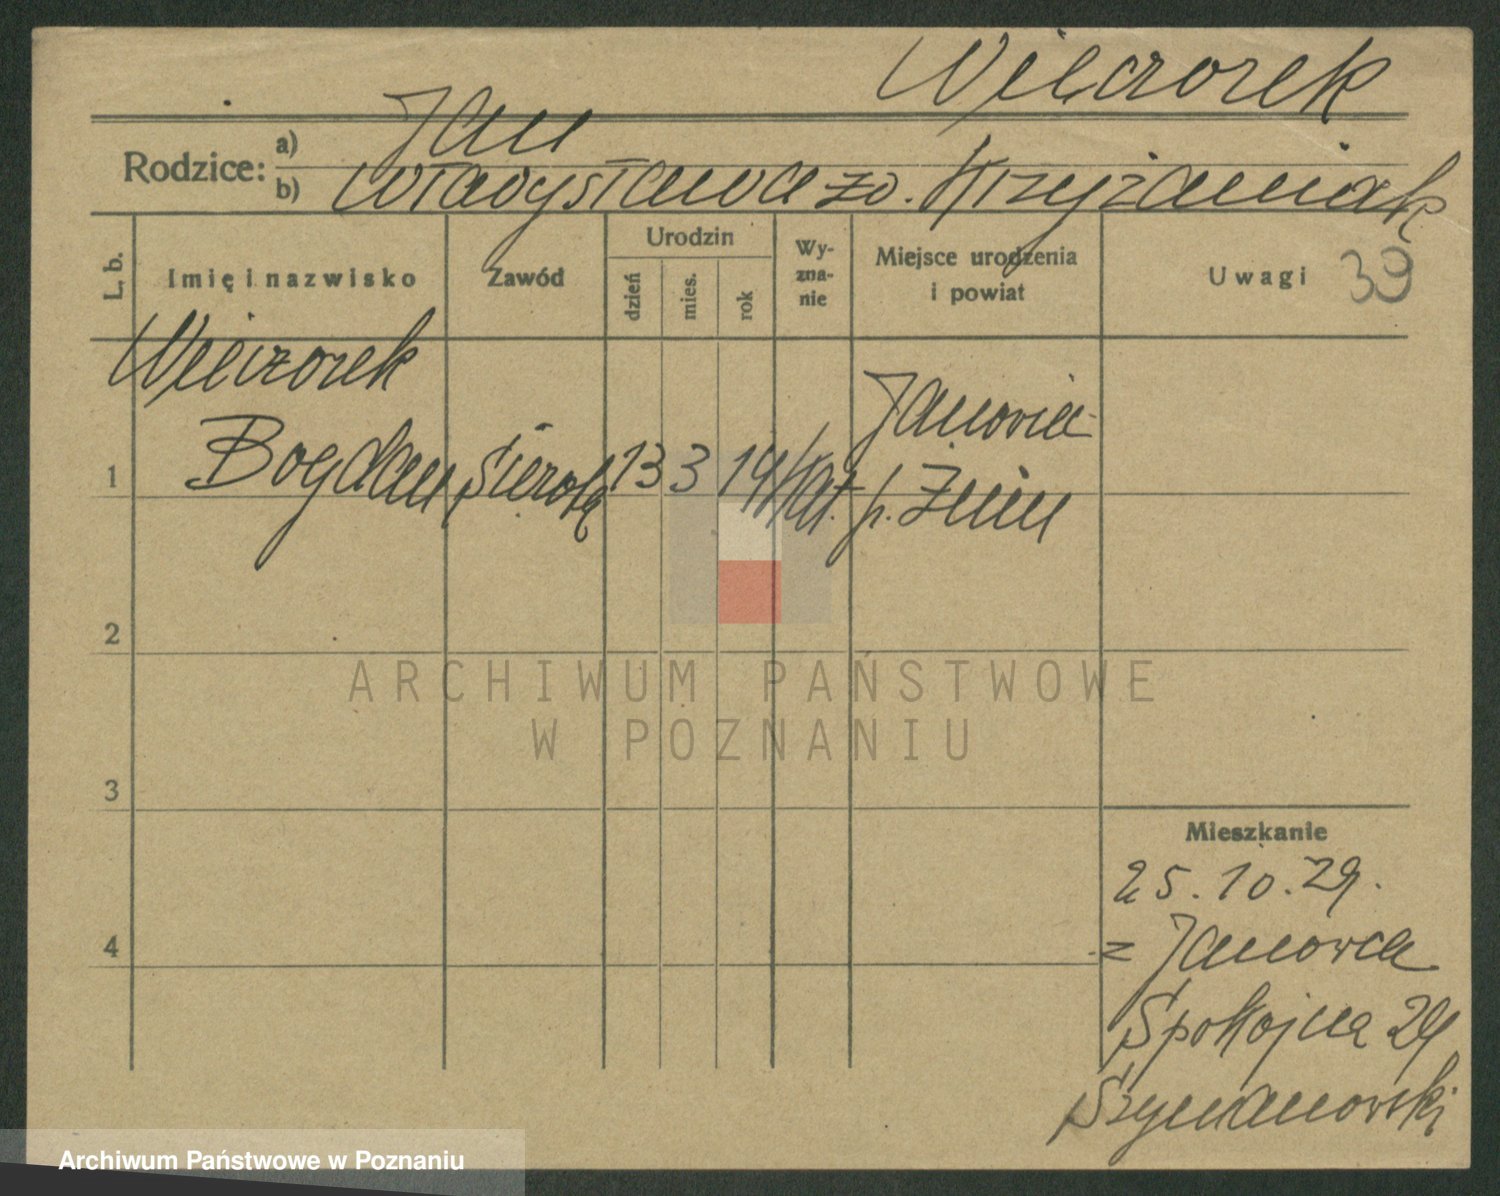 Wieczorek
Rodzice:
a) Jan
b) Władysława zd. Krzyżaniak
L. b.
Imię i nazwisko
Zawód
Urodzin
dzień
mies.
rok
Wy-
zna-
nie
Miejsce urodzenia
i powiat
Uwagi
39
Wieczorek
1 Bogdan sierota 13 3 14 kat.
Janowiec
p. Żnin
2
3
4
ARCHIWUM PAŃSTWOWE
W POZNANIU
Mieszkanie
25.10.29.
z Janowca
Spokojna 29
Szymanowski
Archiwum Państwowe w Poznaniu